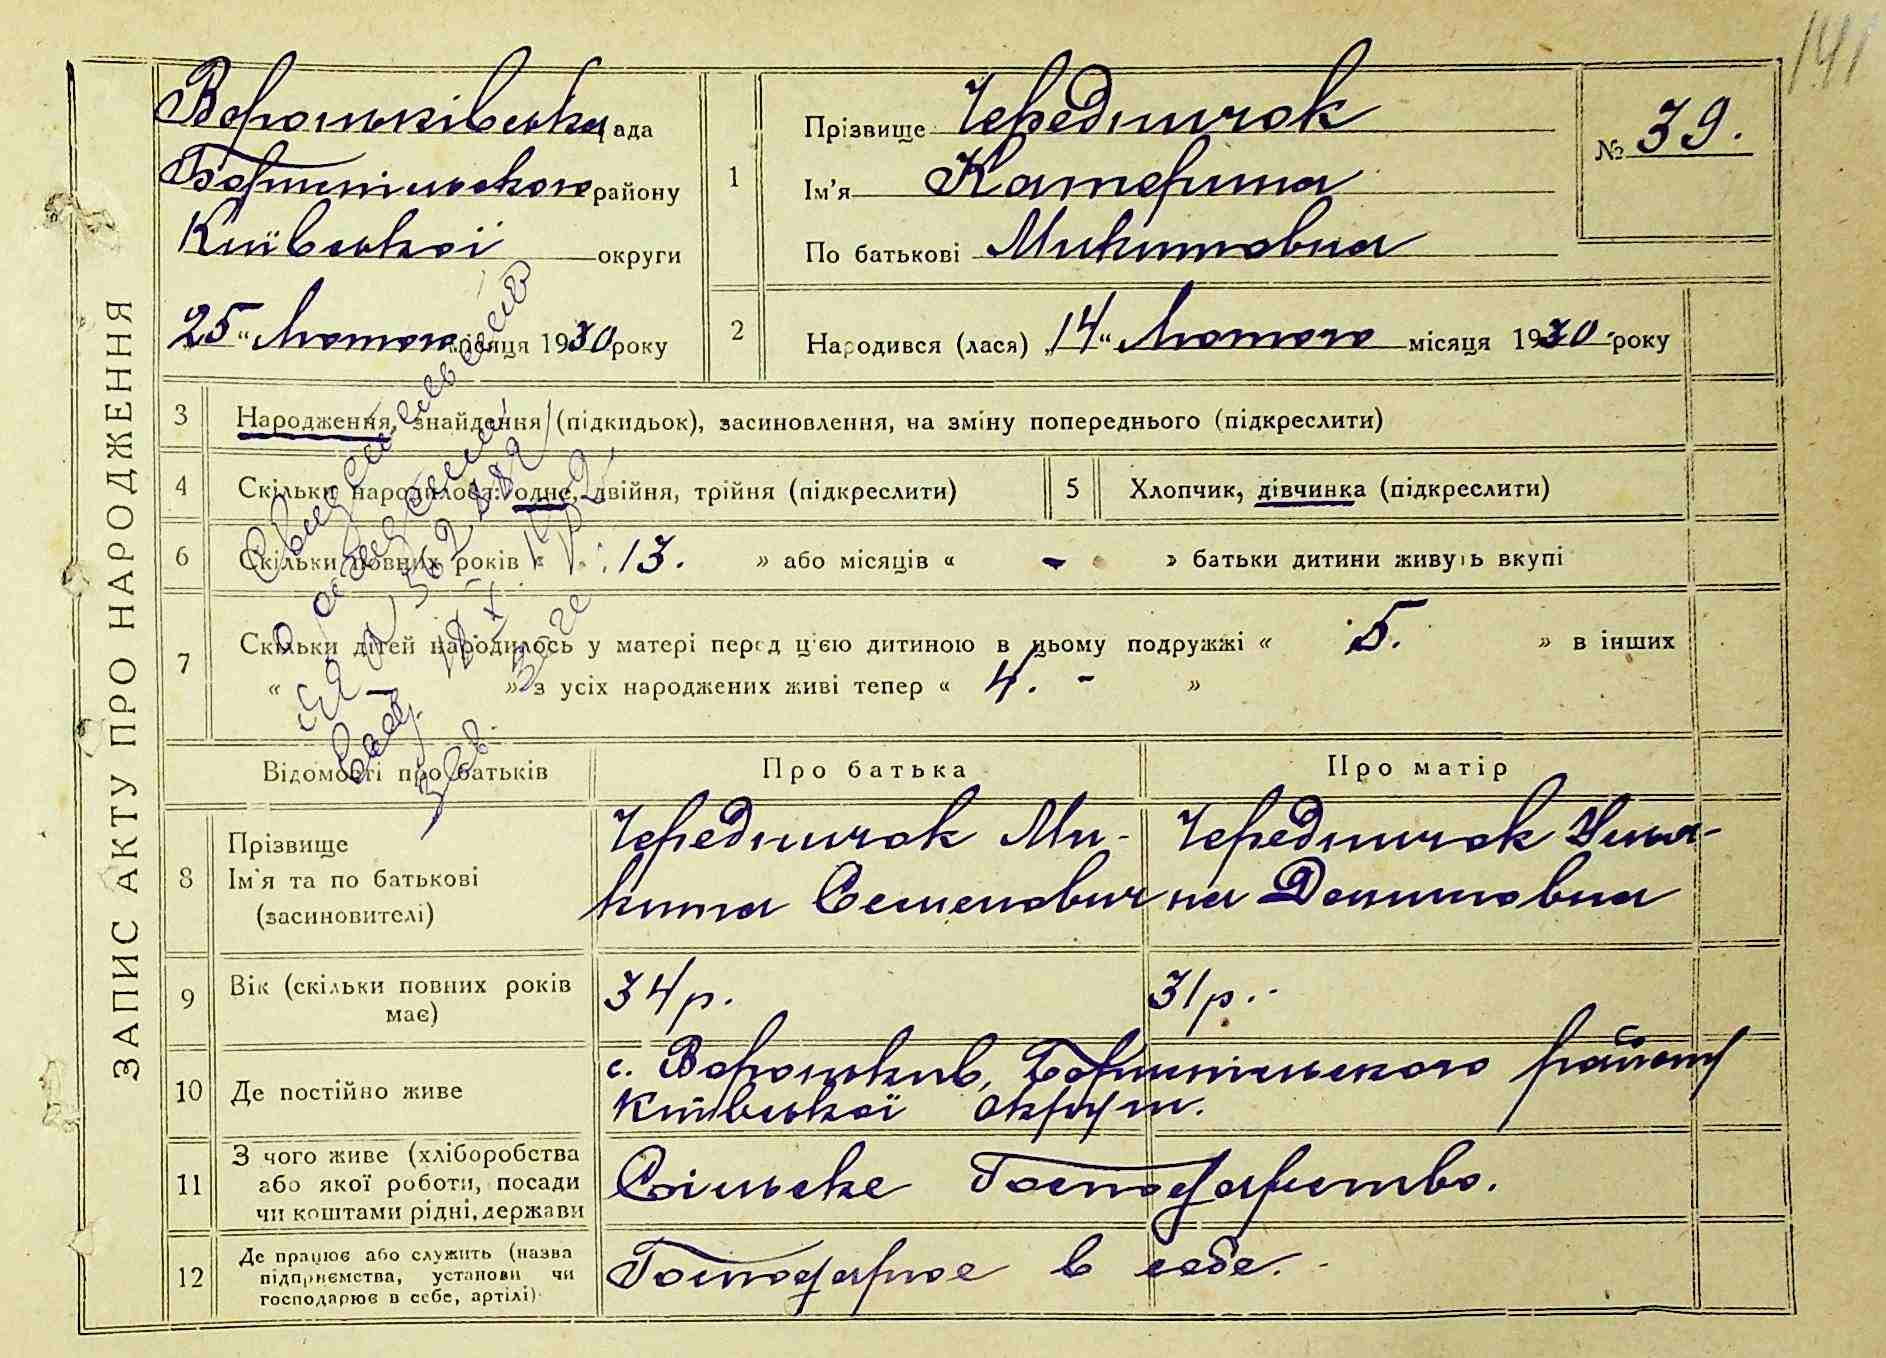 141
Вороньківська рада
Бориспільського району
Київської округи
25 " Лютого місяця 1930 року
1
Прізвище Чередничок
Ім'я Катерина
По батькові Микитовна
№ 39.
2
Народився (лася) „14" Лютого місяця 1930 року
ЗАПИС АКТУ ПРО НАРОДЖЕННЯ
3 Народження, знайдення (підкидьок), засиновлення, на зміну попереднього (підкреслити)
4 Скільки народилось: одне, двійня, трійня (підкреслити)
5 Хлопчик, дівчинка (підкреслити)
6 Скільки повних років « 13. » або місяців « - » батьки дитини живуть вкупі
7 Скільки дітей народилось у матері перед ц'єю дитиною в цьому подружжі « 5. » в інших
« » з усіх народжених живі тепер « 4. - »
Відомості про батьків
Про батька
Про матір
8 Прізвище
Ім'я та по батькові
(засиновителі)
Чередничок Ми-
кита Семенович
Чередничок Улья-
на Даниловна
9 Вік (скільки повних років
має)
34 р.
31 р.
10 Де постійно живе
с. Вороньків, Бориспільського району
Київської округи.
11 З чого живе (хліборобства
або якої роботи, посади
чи коштами рідні, держави
Сільске Господарство.
12 Де працює або служить (назва
підприємства, установи чи
господарює в себе, артілі)
Господарює в себе.